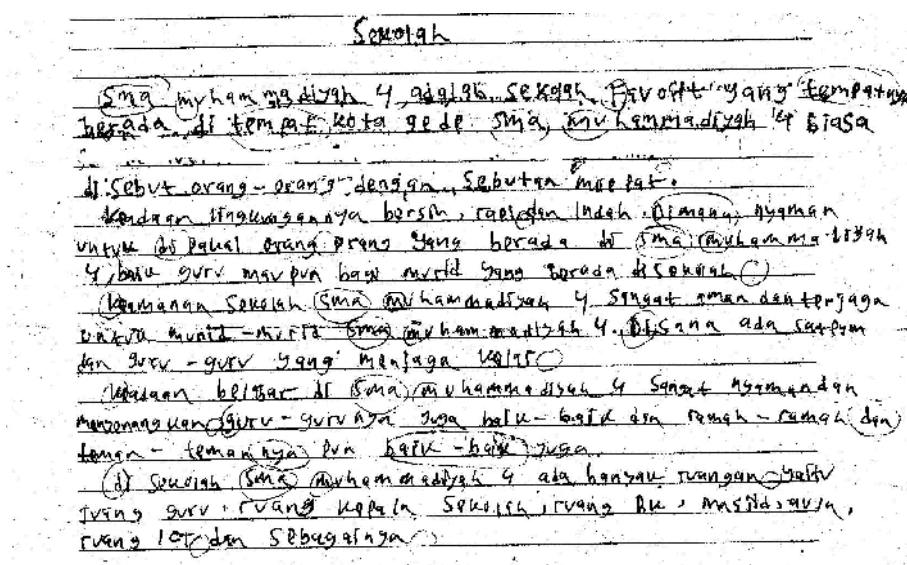 Sekolah
Sma muhammadiyah 4, adalah sekolah Favorit yang tempatnya
berada di tempat kota gede sma, muhammadiyah 4 biasa
di sebut orang-orang dengan, sebutan
Keadaan lingkungannya bersih, rapi dan indah. Dimana, nyaman
untuk di pakai orang orang yang berada di sma muhammadiyah
4, baik guru maupun bagi murid yang berada di sekolah
Keamanan sekolah sma muhammadiyah 4 sangat aman dan terjaga
untuk murid-murid sma muhammadiyah 4. Disana ada satpam
dan guru-guru yang menjaga kelas
Keadaan belajar di sma muhammadiyah 4 sangat nyaman dan
menyenangkan guru-gurunya juga baik-baik dan ramah-ramah dan
teman-temannya pun baik-baik juga
di sekolah sma muhammadiyah 4 ada banyak ruangan yaitu
ruang guru, ruang kepala sekolah, ruang BK, masjid, aula,
ruang ICT dan sebagainya